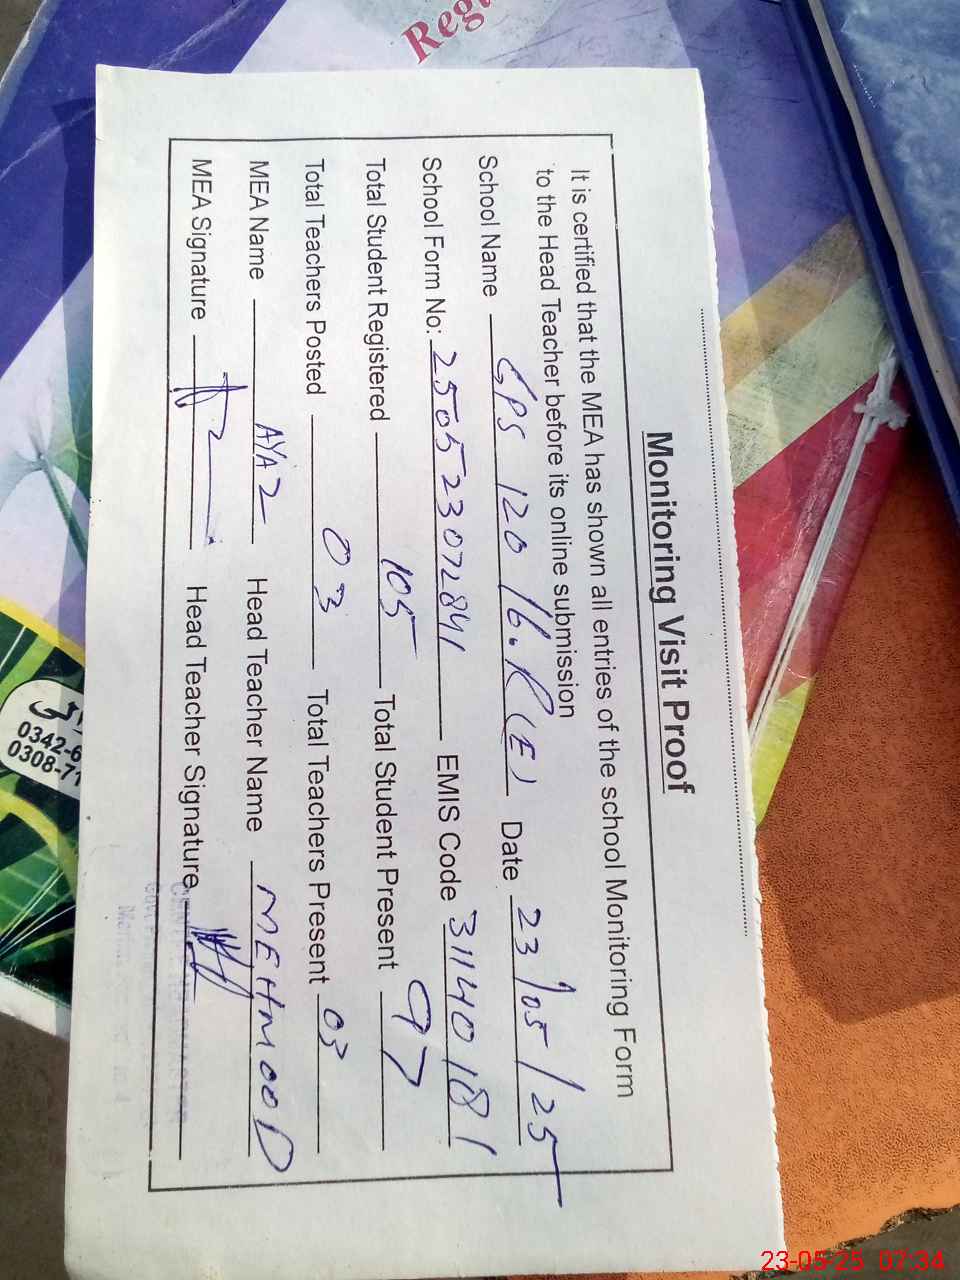 Monitoring Visit Proof
It is certified that the MEA has shown all entries of the school Monitoring Form
to the Head Teacher before its online submission
School Name GPS 120 16.R(E) Date 23/05/25
School Form No: 250523072841 EMIS Code 31140181
Total Student Registered 105 Total Student Present 97
Total Teachers Posted 03 Total Teachers Present 03
MEA Name AYAZ Head Teacher Name MEHMOOD
MEA Signature Head Teacher Signature
0342-6
0308-71
23-05-25 07:34